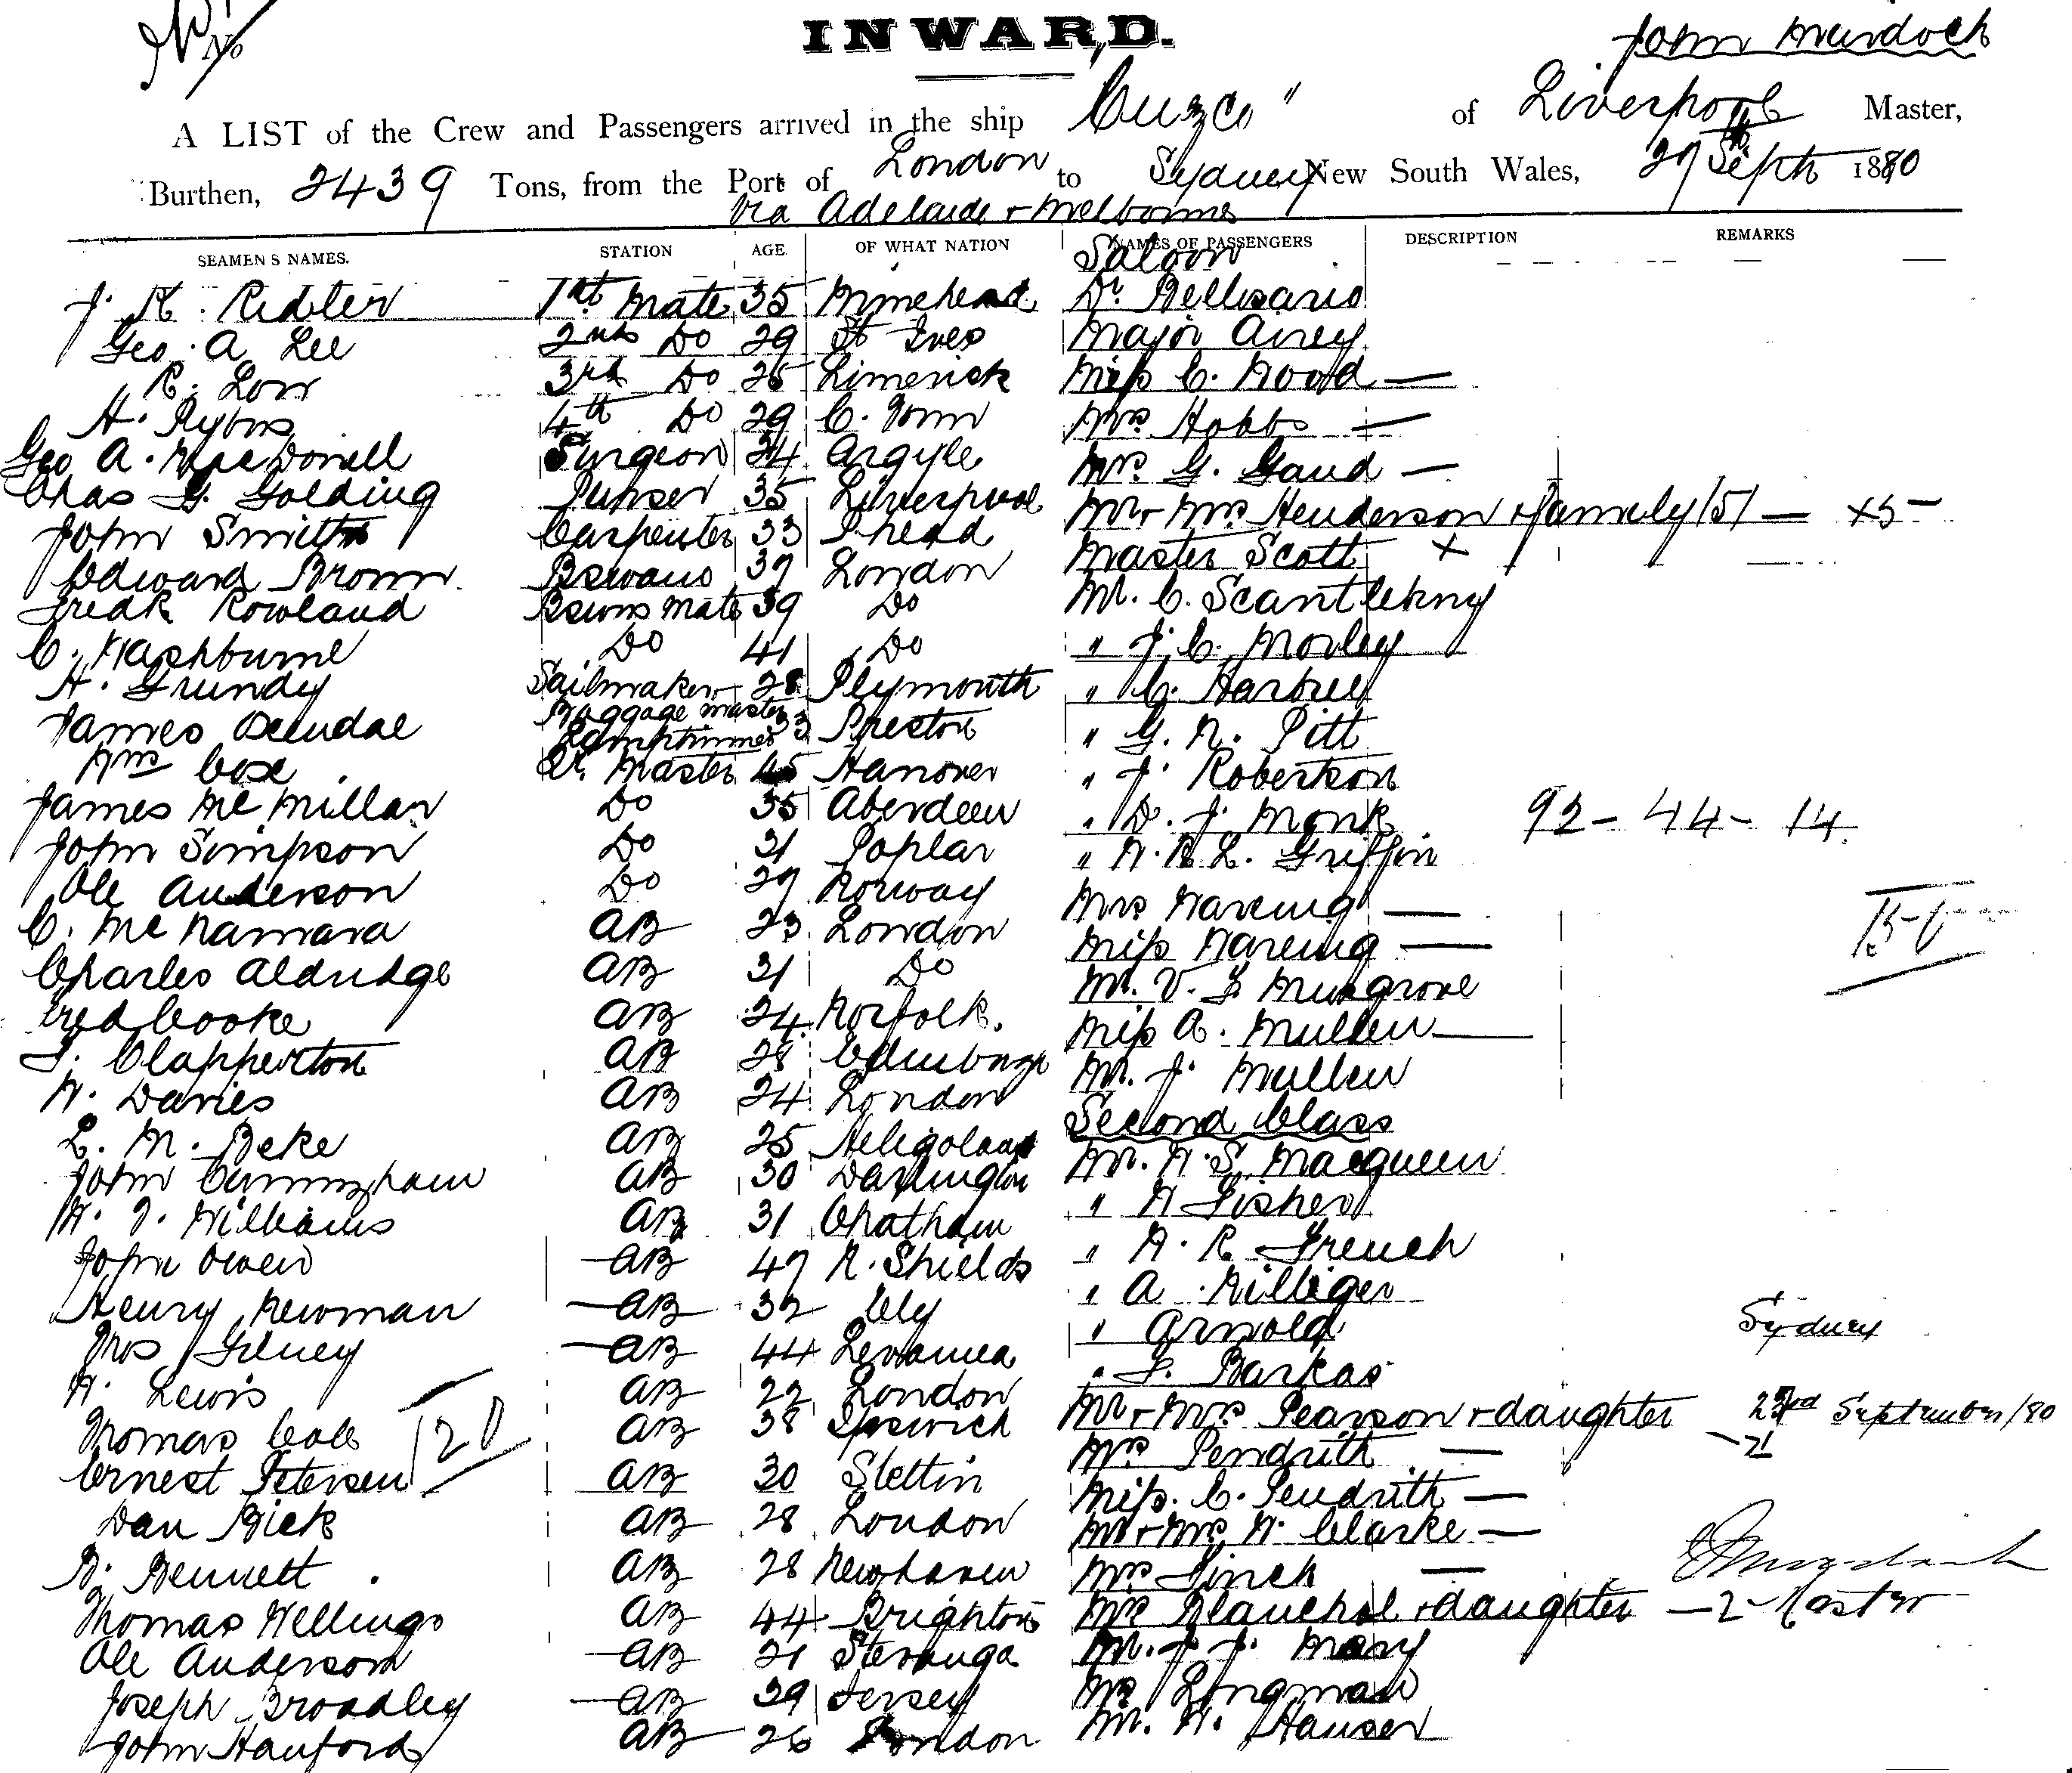 No
INWARD.
John Murdoch
A LIST of the Crew and Passengers arrived in the ship "Cuzco" of Liverpool Master,
Burthen, 2439 Tons, from the Port of London to Sydney New South Wales, 27 Septr 1880
Via Adelaide & Melbourne
SEAMEN'S NAMES. STATION AGE OF WHAT NATION NAMES OF PASSENGERS DESCRIPTION REMARKS
Saloon
J. K. Ridler 1st Mate 35 Minehead Dr. Bellisario
Geo. A Lee 2nd Do 29 St Ives Major Airey
R. Low 3rd Do 25 Limerick Miss C. Wood —
H. 4th Do 29 C. Town Mrs Hobbs —
Geo A. MacDonell Surgeon 24 Argyle Mrs. G. Gaud —
Chas G. Golding Purser 35 Liverpool Mr & Mrs Henderson & family (5) — x5 —
John Smith Carpenter 33 P.head Master Scott x
Edward Brown Bswans 37 London Mr. C. Scantlebury
Fredk Rowland Bswns Mate 39 Do " J. C. Morley
C. Washburne Do 41 Do " C. Hartree
H. Grundy Sailmaker 28 Plymouth " G. N. Pitt
James Deudal Baggage Master Lamptrimmer 33 Preston " J. Robertson
Wm Cose Qr. Master 45 Hanover " D. J. Monk 92 - 44 - 14
James McMillan Do 35 Aberdeen " W. R. L. Griffin
John Simpson Do 31 Poplar Mrs Wareing —
Ole Anderson Do 27 Norway Miss Wareing —
C. McNamara AB 23 London Mr. V. F. Musgrove
Charles Aldridge AB 31 Do Miss A. Mullen —
Fred Cooke AB 24 Norfolk. Mr. J. Mullen
T. Clapperton AB 28 Edinburgh Second Class
W. Davies AB 24 London Mr. W. S. Macqueen
L. M. Beke AB 25 Heligoland " W Fisher
John Cunningham AB 30 Darlington " W. R. French
W. J. Williams AB 31 Chatham " A. Williger
John Owen AB 47 N. Shields " Arnold
Henry Newman AB 32 Ely " F. Barkas Sydney
Thos Gilney AB 44 Mr & Mrs Pearson & daughter 23rd September/80
W. Lewis AB 22 London Mrs Pendrith — — 21
Thomas Cole AB 38 Ipswich Miss. C. Pendrith —
120
Ernest Petersen AB 30 Stettin Mr & Mrs W. Clarke —
Dan Bick AB 28 London Mrs Finch —
B. Bennett AB 28 Newhaven Mrs Blanchel & daughter — 2 — Master
Thomas Wellings AB 44 Brighton Mr. J. J. Mary
Ole Anderson AB 21 Stevanga Mr Longman
Joseph Broadley AB 39 Jersey Mr. W. Hauser
John Hanford AB 26 London